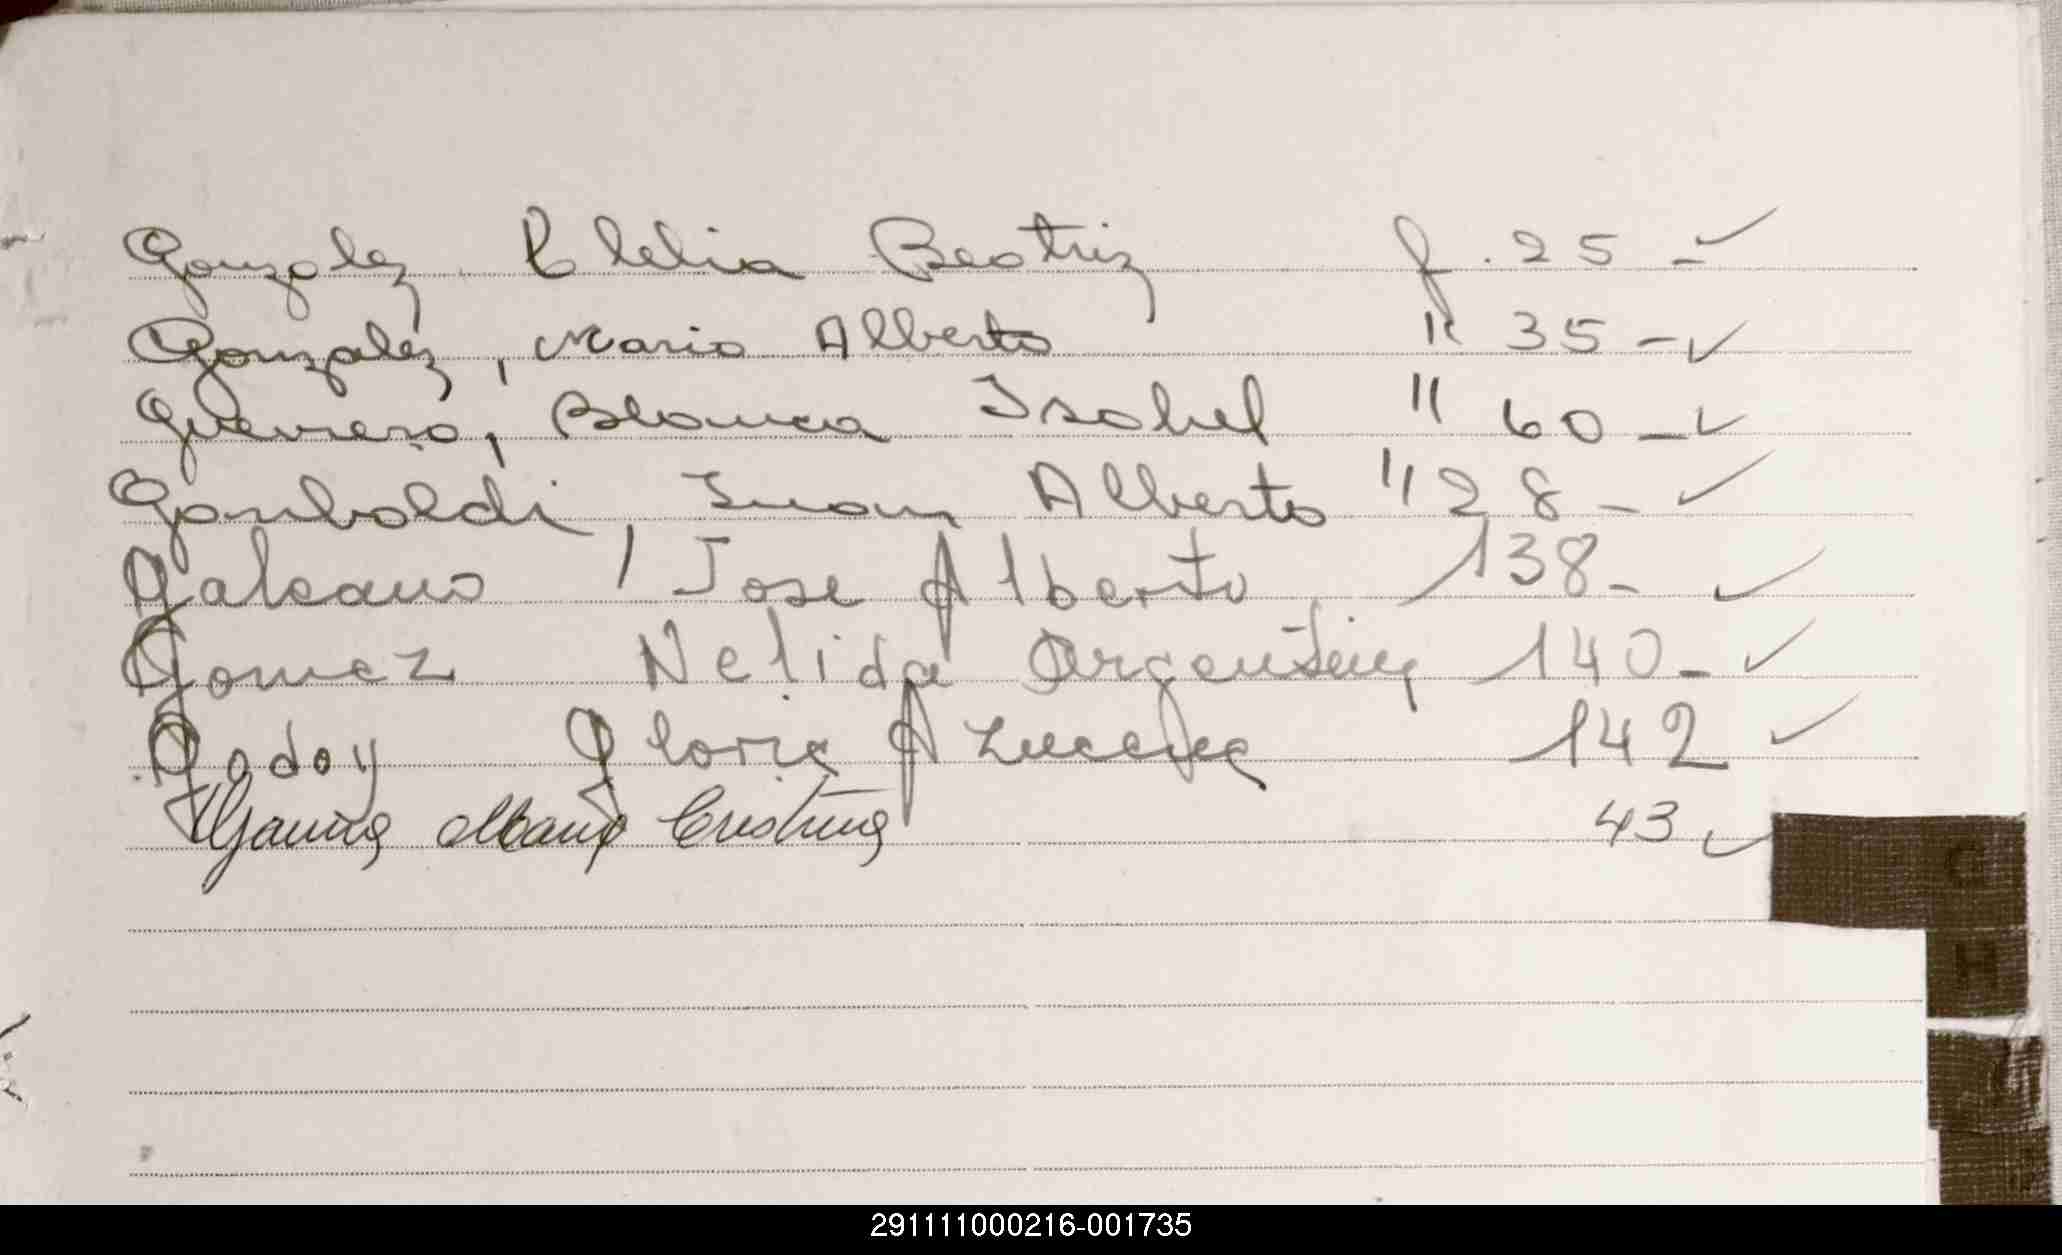 Gonzalez Clelia Beatriz f. 25 - ✓
Gonzalez, Mario Alberto " 35 - ✓
Guerrero, Blanca Isabel " 60 - ✓
Garibaldi, Juan Alberto " 28 - ✓
Galeano, Jose Alberto 138 - ✓
Gomez Nelida Argentina 140 - ✓
Godoy Gloria Azucena 142 ✓
Cristina 43 ✓
G
H
291111000216-001735